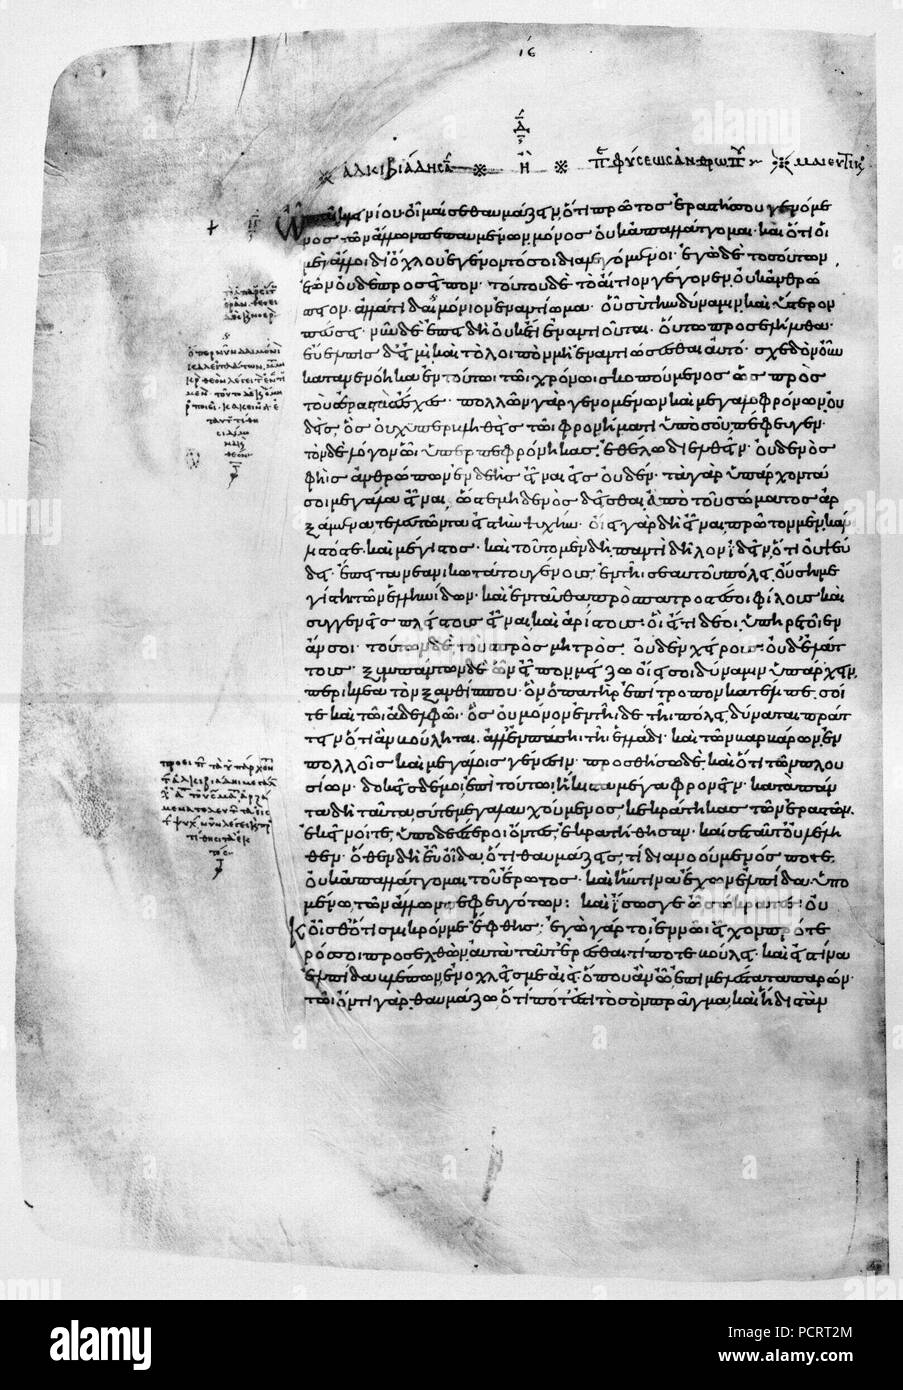 ις
ἀλκιβιάδης ᾱ ※ ἢ ※ π φύσεως ἀνθρώπου ※ μαιευτικ
Ὦ παῖ κλεινίου· οἶμαί σε θαυμάζειν, ὅτι πρῶτος ἐραστής σου γενόμε
νος τῶν ἄλλων πεπαυμένων, μόνος οὐκ ἀπαλλάττομαι· καὶ ὅτι οἱ
μὲν ἄλλοι δι' ὄχλου ἐγένοντό σοι διαλεγόμενοι· ἐγὼ δὲ τοσούτων
ἐτῶν οὐδὲ προσεῖπον· τούτου δὲ τὸ αἴτιον γέγονεν οὐκ ἀνθρώ
πειον· ἀλλά τι δαιμόνιον ἐναντίωμα· οὗ σὺ τὴν δύναμιν καὶ ὕστερον
πεύσει· νῦν δὲ ἐπειδὴ οὐκέτι ἐναντιοῦται· οὕτω προσελήλυθα·
εὔελπις δ' εἰμὶ καὶ τὸ λοιπὸν μὴ ἐναντιώσεσθαι αὐτό· σχεδὸν οὖν
κατανενόηκα ἐν τούτωι τῶι χρόνωι σκοπούμενος ὡς πρὸς
τοὺς ἐραστὰς ἔσχες· πολλῶν γὰρ γενομένων καὶ μεγαλοφρόνων, οὐ
δεὶς, ὃς οὐχ ὑπερβληθεὶς τῶι φρονήματι ὑπὸ σοῦ πέφευγεν·
τὸν δὲ λόγον ὧι ὑπερπεφρόνηκας, ἐθέλω διελθεῖν· οὐδενὸς
φῂς ἀνθρώπων ἐνδεὴς εἶναι εἰς οὐδέν· τὰ γὰρ ὑπάρχοντά
σοι μεγάλα εἶναι, ὥστε μηδενὸς δεῖσθαι ἀπὸ τοῦ σώματος ἀρ
ξάμενα τελευτῶντα εἰς τὴν ψυχήν· οἴει γὰρ δὴ εἶναι πρῶτον μὲν, κάλ
λιστός τε καὶ μέγιστος· καὶ τοῦτο μὲν δὴ παντὶ δῆλον ἰδεῖν, ὅτι οὐ ψεύ
δει· ἔπειτα νεανικωτάτου γένους, ἐν τῆι σεαυτοῦ πόλει, οὔσηι με
γίστηι τῶν ἑλληνίδων· καὶ ἐνταῦθα πρὸς πατρός τέ σοι φίλους καὶ
συγγενεῖς πλείστους εἶναι καὶ ἀρίστους· οἳ εἴ τι δέοι, ὑπηρετοῖεν
ἄν σοι· τούτων δὲ τοὺς πρὸς μητρὸς· οὐδὲν χείρους· οὐδ' ἐλάτ
τους· ξυμπάντων δὲ ὧν εἶπον, μείζω οἴει σοι δύναμιν ὑπάρχειν,
περικλέα τὸν ξανθίππου· ὃν ὁ πατὴρ ἐπίτροπον κατέλιπε σοί
τε καὶ τῶι ἀδελφῶι· ὃς οὐ μόνον ἐν τῆιδε τῆι πόλει δύναται πράτ
τειν ὅτι ἂν βούληται, ἀλλ' ἐν πάσηι τῆι ἑλλάδι· καὶ τῶν βαρβάρων ἐν
πολλοῖς καὶ μεγάλοις γένεσιν· προσθήσω δὲ, καὶ ὅτι τῶν πλου
σίων· δοκεῖς δέ μοι ἐπὶ τούτωι ἥκιστα μέγα φρονεῖν· κατὰ πάν
τα δὴ ταῦτα, σύ τε μεγαλαυχούμενος, κεκράτηκας τῶν ἐραστῶν·
ἐκεῖνοί τε, ὑποδεέστεροι ὄντες, ἐκρατήθησαν· καί σε ταῦτ' οὐ λέλη
θεν· ὅθεν δὴ εὖ οἶδα, ὅτι θαυμάζεις, τί διανοούμενός ποτε,
οὐκ ἀπαλλάττομαι τοῦ ἔρωτος· καὶ ἥντινα ἔχων ἐλπίδα ὑπο
μένω τῶν ἄλλων πεφευγότων: καὶ ἴσως γε ὦ σώκρατες οὐ
κ οἶσθ' ὅτι σμικρόν με ἔφθης· ἐγὼ γάρ τοι ἐν νῶι εἶχον πρότε
ρός σοι προσελθὼν αὐτὰ ταῦτ' ἐρέσθαι τί ποτε βούλει· καὶ εἰς τίνα
ἐλπίδα βλέπων, ἐνοχλεῖς με ἀεὶ ὅπου ἂν ὦ ἐπιμελέστατα παρών·
τῶι ὄντι γὰρ θαυμάζω ὅτι ποτ' ἐστὶ τὸ σὸν πρᾶγμα, καὶ ἡδέως ἂν
alamy
Image ID: PCRT2M
www.alamy.com